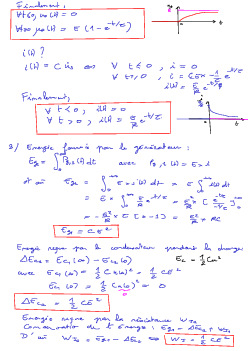 Finalement,
∀t<0, us(t) = 0
∀t>0 us(t) = E (1 - e^-t/τ)
i(t) ?
i(t) = C u̇s ⇔ ∀ t<0, i = 0
∀ t>0, i = CE × 1/τ e^-t/τ
i(t) = E/R e^-t/τ
Finalement,
∀ t<0, i(t) = 0
∀ t>0, i(t) = E/R e^-t/τ
3/ Energie fournie par le générateur :
Eg = ∫₀^∞ Pg(t) dt avec Pg(t) = E × i
et où Eg = ∫₀^∞ E × i(t) dt = E ∫₀^∞ i(t) dt
= E × ∫₀^∞ E/R e^-t/τ dt = E²/R × [e^-t/τ / -1/τ]₀^∞
= -E²/R × τ [0 - 1] = E²/R × RC
Eg = C E²
Energie reçue par le condensateur pendant la charge
ΔEc = Ec(∞) - Ec(0) Ec = 1/2 Cu²
avec Ec(∞) = 1/2 C us(∞)² = 1/2 CE²
Ec(0) = 1/2 C us(0)² = 0
ΔEc = 1/2 CE²
Energie reçue par la résistance WJ
Conservation de l'énergie : Eg = ΔEc + WJ
D'où WJ = Eg - ΔEc ⇔ WJ = 1/2 CE²